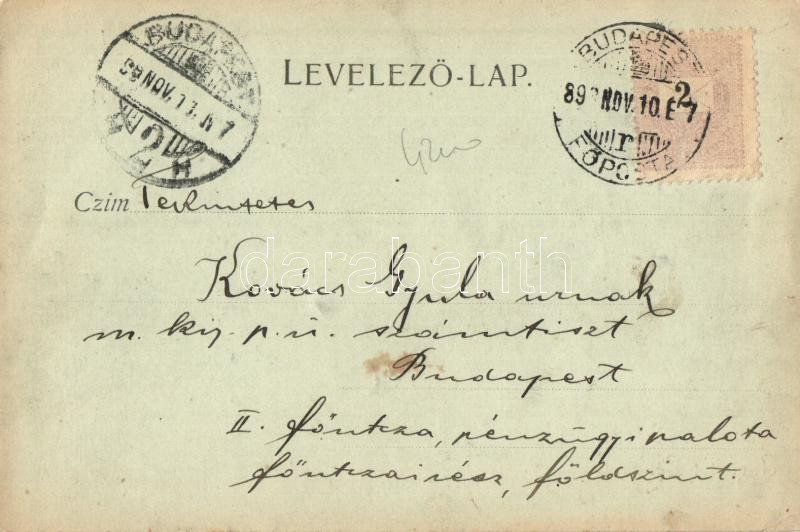 LEVELEZŐ-LAP.
BUDAPEST
898 NOV. 10. E 7
FŐPOSTA
2
BUDAPEST
98 NOV. 11. N 7
Czim Tekintetes
Kovács Gyula urnak
m. kir. p. ü. számtiszt
Budapest
II. főutcza, pénzügyi palota
főutczai rész, földszint.
darabanth.com